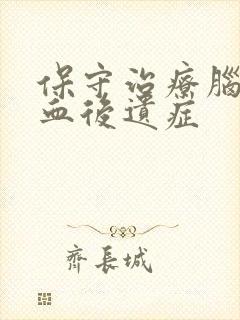 保守治療腦
血後遺症
齊長城